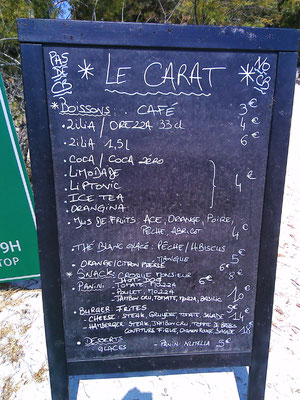 PAS
DE
CB
* LE CARAT *
* BOISSONS : CAFÉ 3€
• ZILIA / OREZZA 33 cl 4€
• ZILIA 1,5 L 6€
• COCA / COCA ZÉRO
• LIMONADE
• LIPTONIC 4€
• ICE TEA
• ORANGINA
• JUS DE FRUITS : ACE, ORANGE, POIRE,
PÊCHE, ABRICOT 4€
• THÉ BLANC GLACÉ : PÊCHE / HIBISCUS
• ORANGE / CITRON PRESSÉ 6€
5€
* SNACK : CROQUE MONSIEUR 8€
• PANINI
TOMATE, MOZZA
POULET, MOZZA 10€
JAMBON CRU, TOMATE, MOZZA, BASILIC
• BURGER FRITES
- CHEESE : STEAK, GRUYÈRE, TOMATE, SALADE 14€
STEAK, JAMBON CRU, TOMME DE BREBIS 18€
CONFITURE FIGUE, OIGNON ROUGE, SALADE
• DESSERTS
GLACES - PANINI NUTELLA 5€
9H
TOP